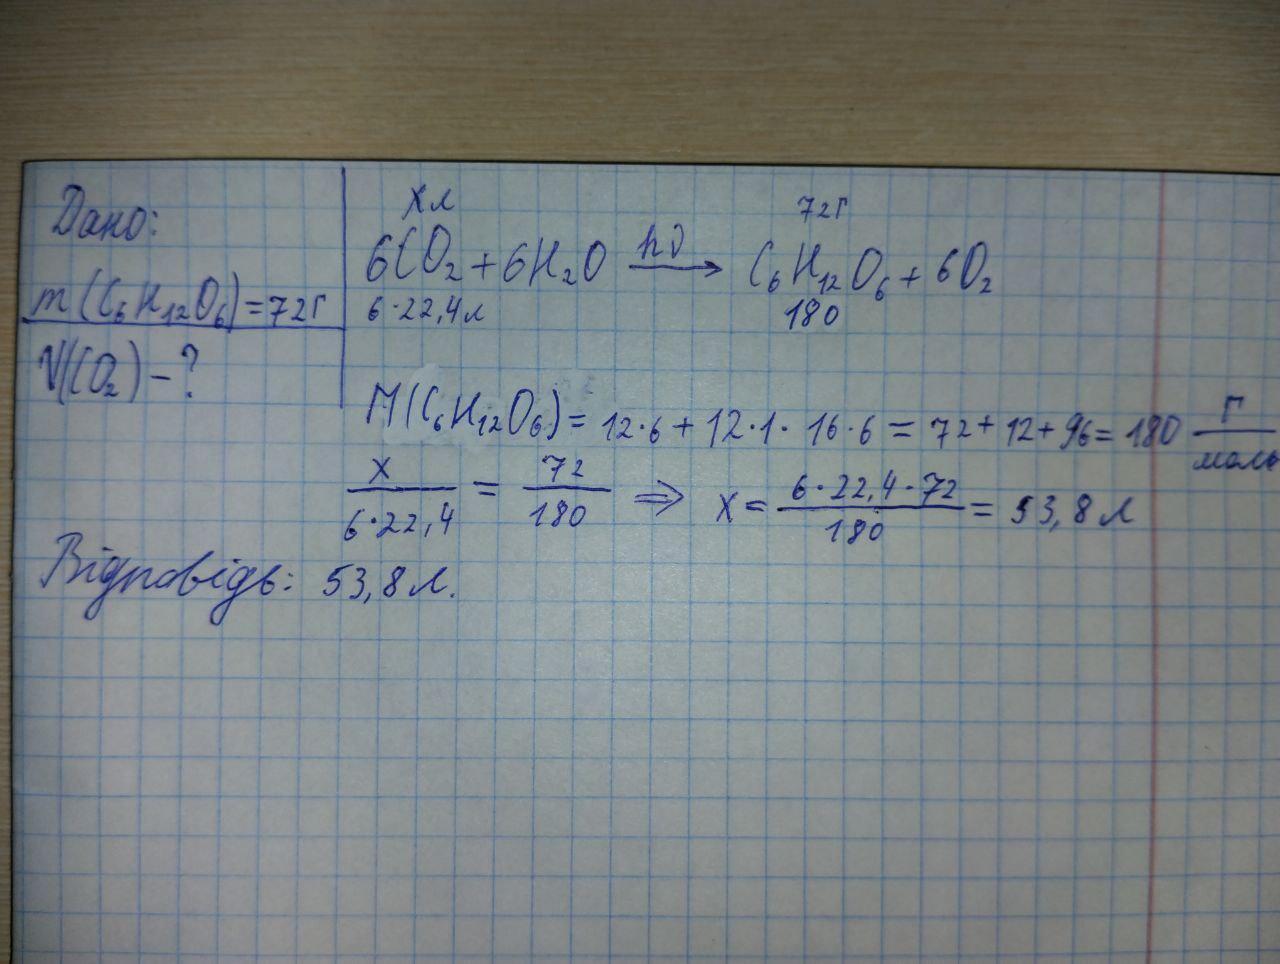 Дано:
m(C₆H₁₂O₆)=72г
V(CO₂) – ?
x л
72г
6CO₂ + 6H₂O hν → C₆H₁₂O₆ + 6O₂
6·22,4 л
180
M(C₆H₁₂O₆) = 12·6 + 12·1· 16·6 = 72+12+96= 180 г/моль
x/(6·22,4) = 72/180 ⇒ x = (6·22,4·72)/180 = 53,8 л
Відповідь: 53,8 л.